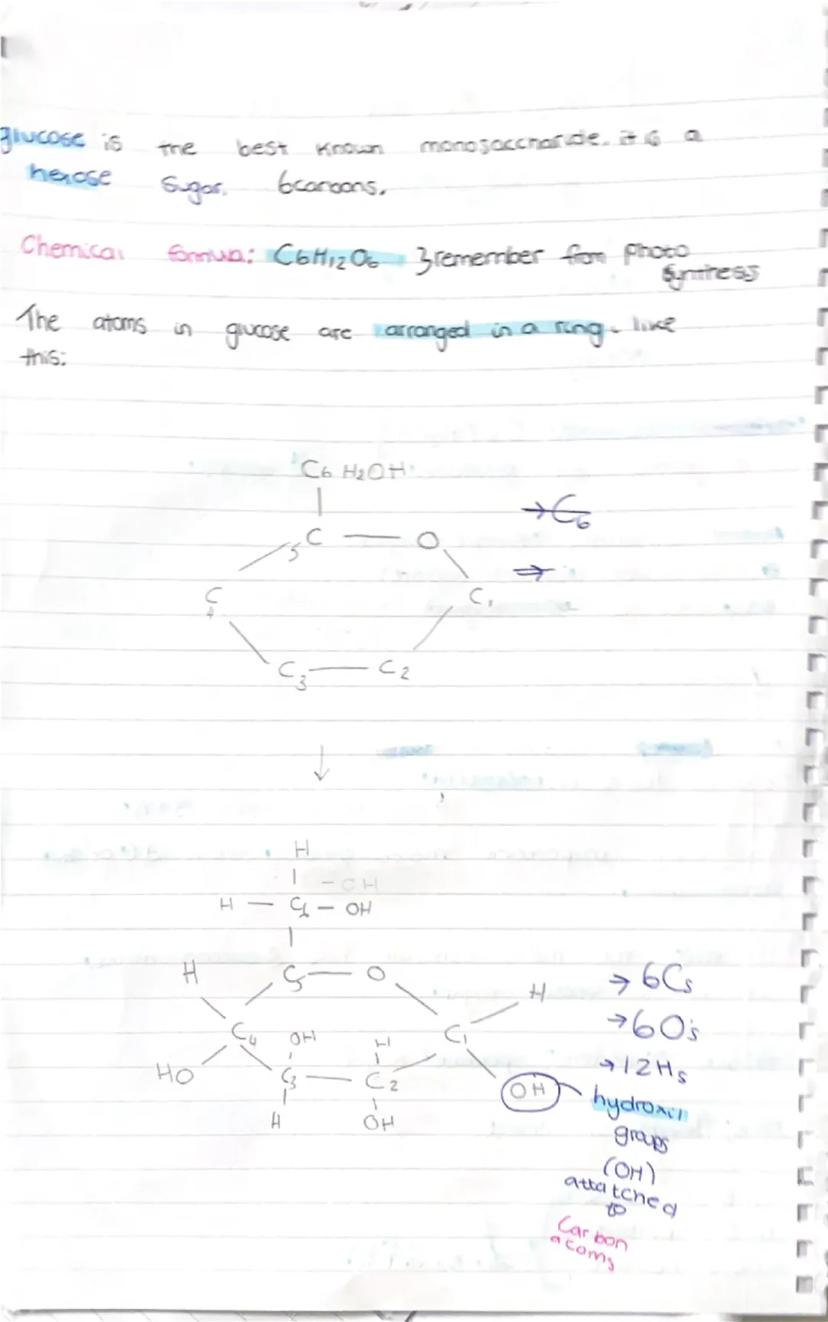 glucose is the best known monosaccharide. it is a
hexose sugar. 6carbons.
Chemical formula: C6H12O6 }remember from photo
synthess
The atoms in glucose are arranged in a ring. like
this:
C6 H2OH
→C6
5C — O
⇒
C4 C1
C3 — C2
↓
H
- OH
H — C6 — OH
H C5 — O H → 6Cs
→ 6O's
C4 OH H C1
→ 12Hs
HO C3 — C2 OH
hydroxil
H OH
groups
(OH)
attatched
to
Carbon
atoms